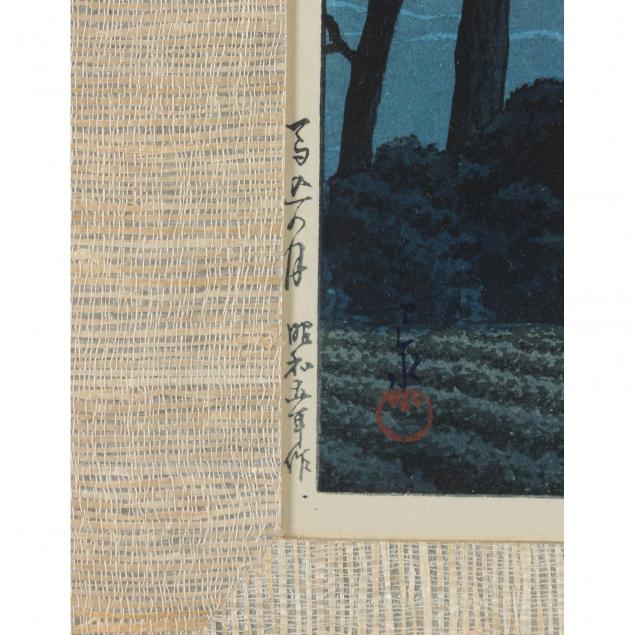 馬込の月 昭和五年作
巴水